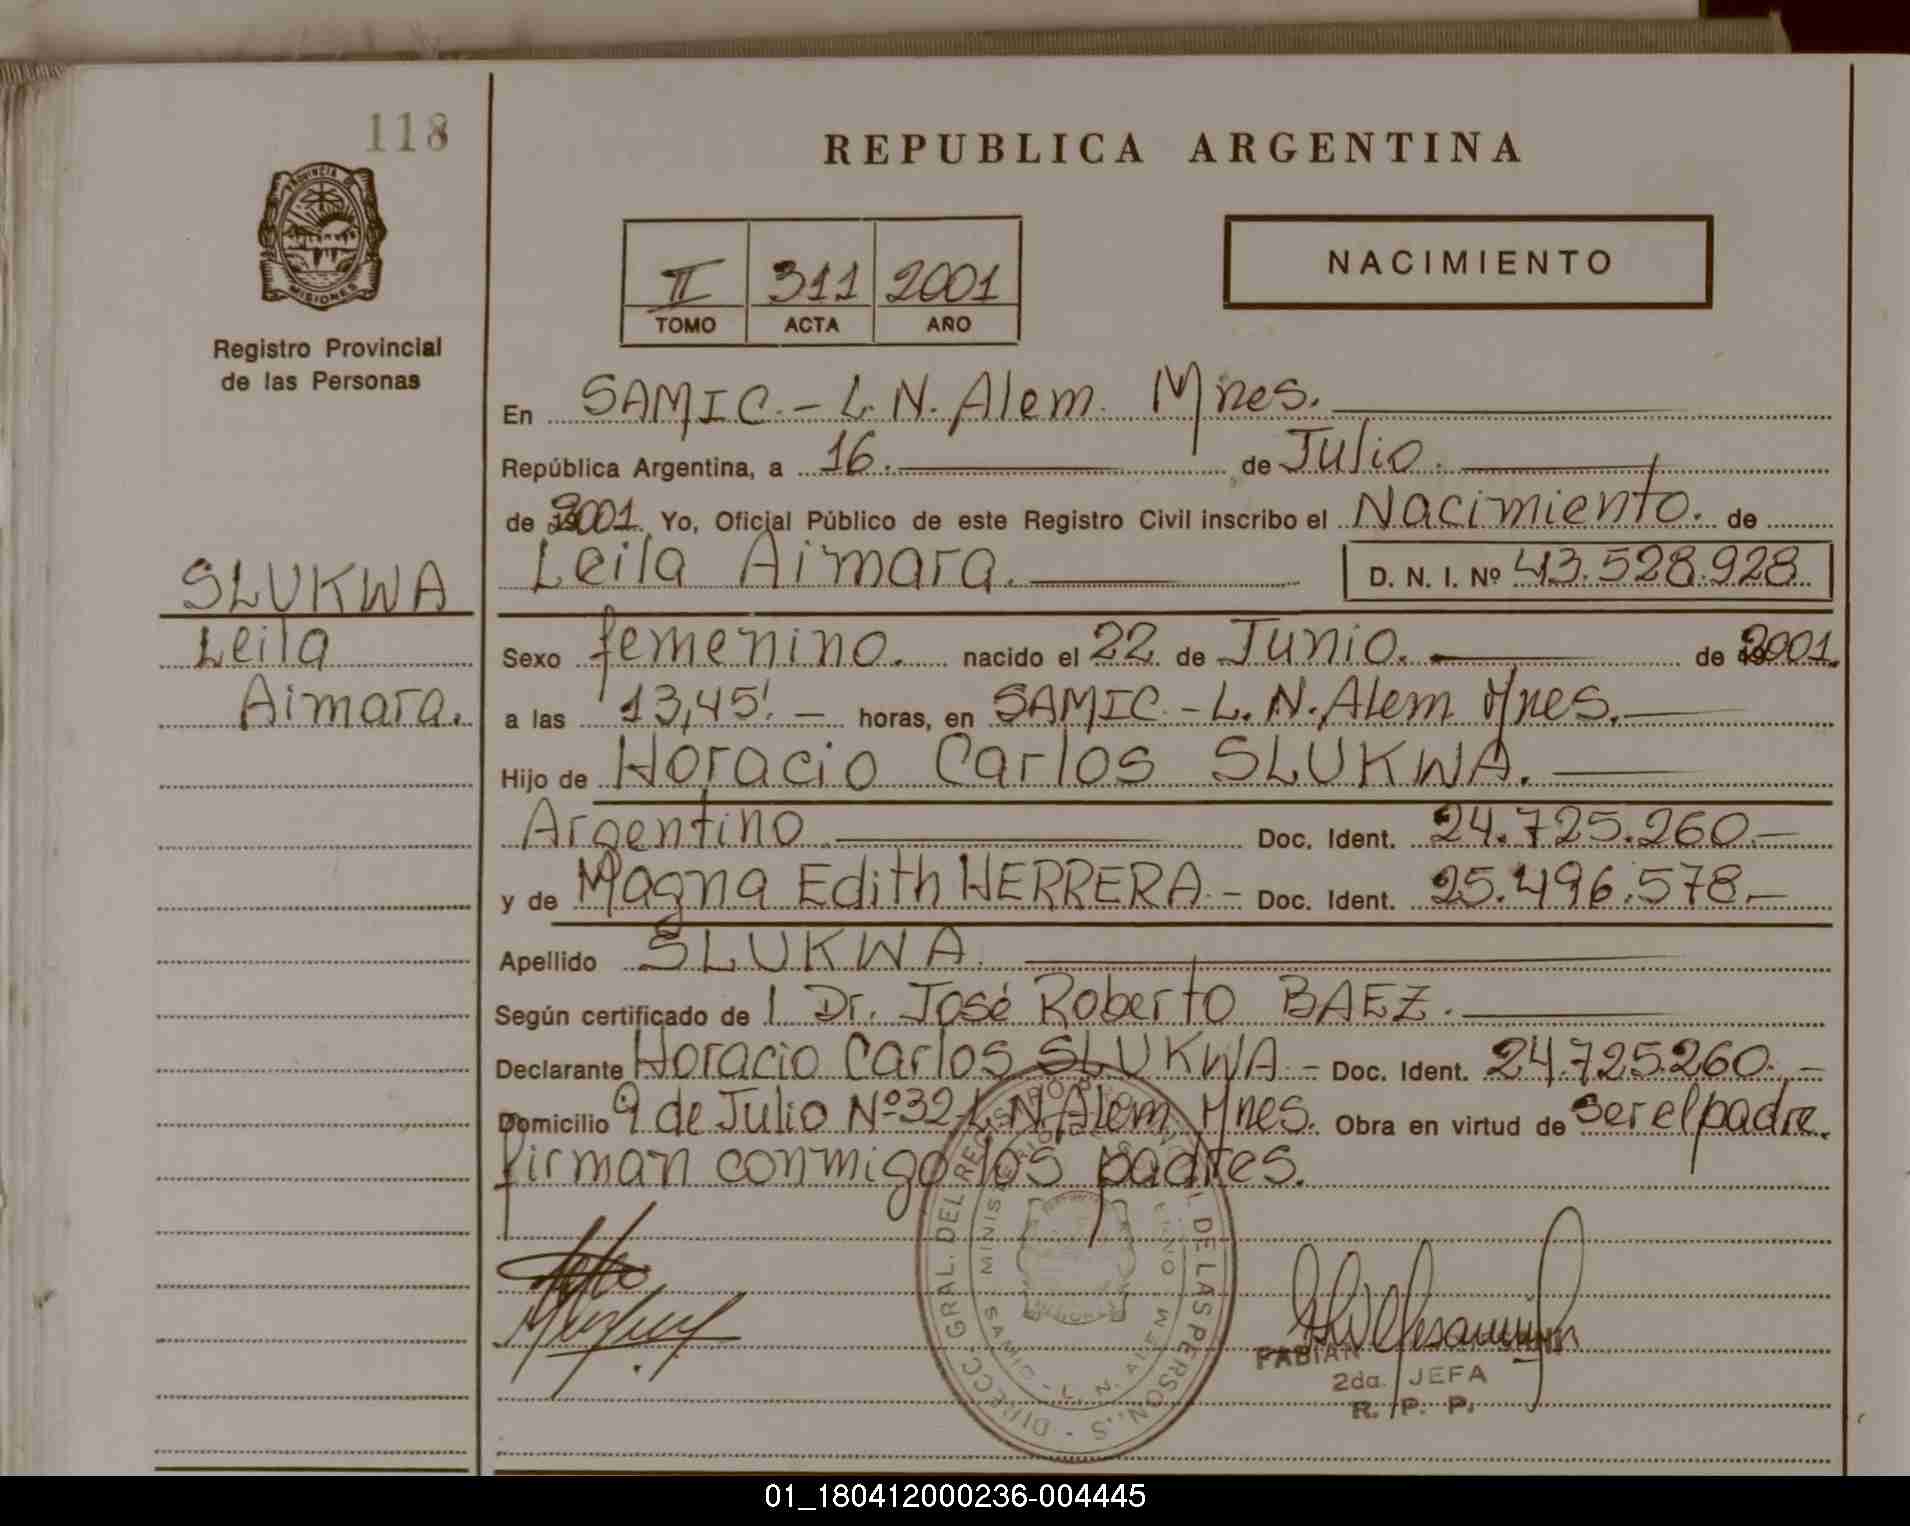 118
PROVINCIA DE
MISIONES
Registro Provincial
de las Personas
SLUKWA
Leila
Aimara.
REPUBLICA ARGENTINA
II 311 2001
TOMO ACTA AÑO
NACIMIENTO
En SAMIC.- L.N. Alem. Mnes.
República Argentina, a 16. de Julio.
de 2001. Yo, Oficial Público de este Registro Civil inscribo el Nacimiento. de
Leila Aimara. D. N. I. Nº 43.528.928
Sexo femenino. nacido el 22 de Junio. de 2001.
a las 13,45'.- horas, en SAMIC.- L.N. Alem Mnes.
Hijo de Horacio Carlos SLUKWA.
Argentino. Doc. Ident. 24.725.260.-
y de Magna Edith HERRERA.- Doc. Ident. 25.496.578.-
Apellido SLUKWA.
Según certificado de l Dr. José Roberto BAEZ.
Declarante Horacio Carlos SLUKWA.- Doc. Ident. 24.725.260.-
Domicilio 9 de Julio Nº 32 L.N. Alem Mnes. Obra en virtud de ser el padre.
firman conmigo los padres.
DIRECC. GRAL. DEL REGISTRO DE LAS PERSONAS
SAMIC - L. N. ALEM
FABIAN
2da. JEFA
R. P. P.
01_180412000236-004445